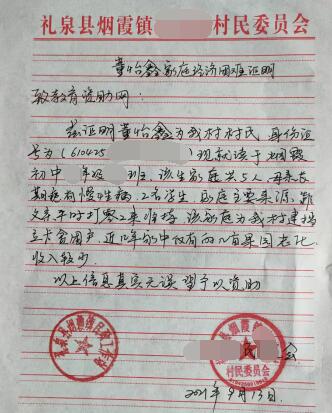 礼泉县烟霞镇 村民委员会
董怡鑫家庭经济困难证明
致教育资助网：
兹证明董怡鑫为我村村民 身份证
号为（610425 ）现就读于烟霞
初中 年级 班，该生家庭共5人 母亲长
期患有慢性病，2名学生，家庭主要来源，靠
父亲平时打零工来维持 该家庭为我村建档
立卡贫困户，近几年家中仅有的几亩果园老化，
收入较少
以上信息真实无误 望予以资助
礼泉县烟霞镇
村民委员会
2021年9月13日